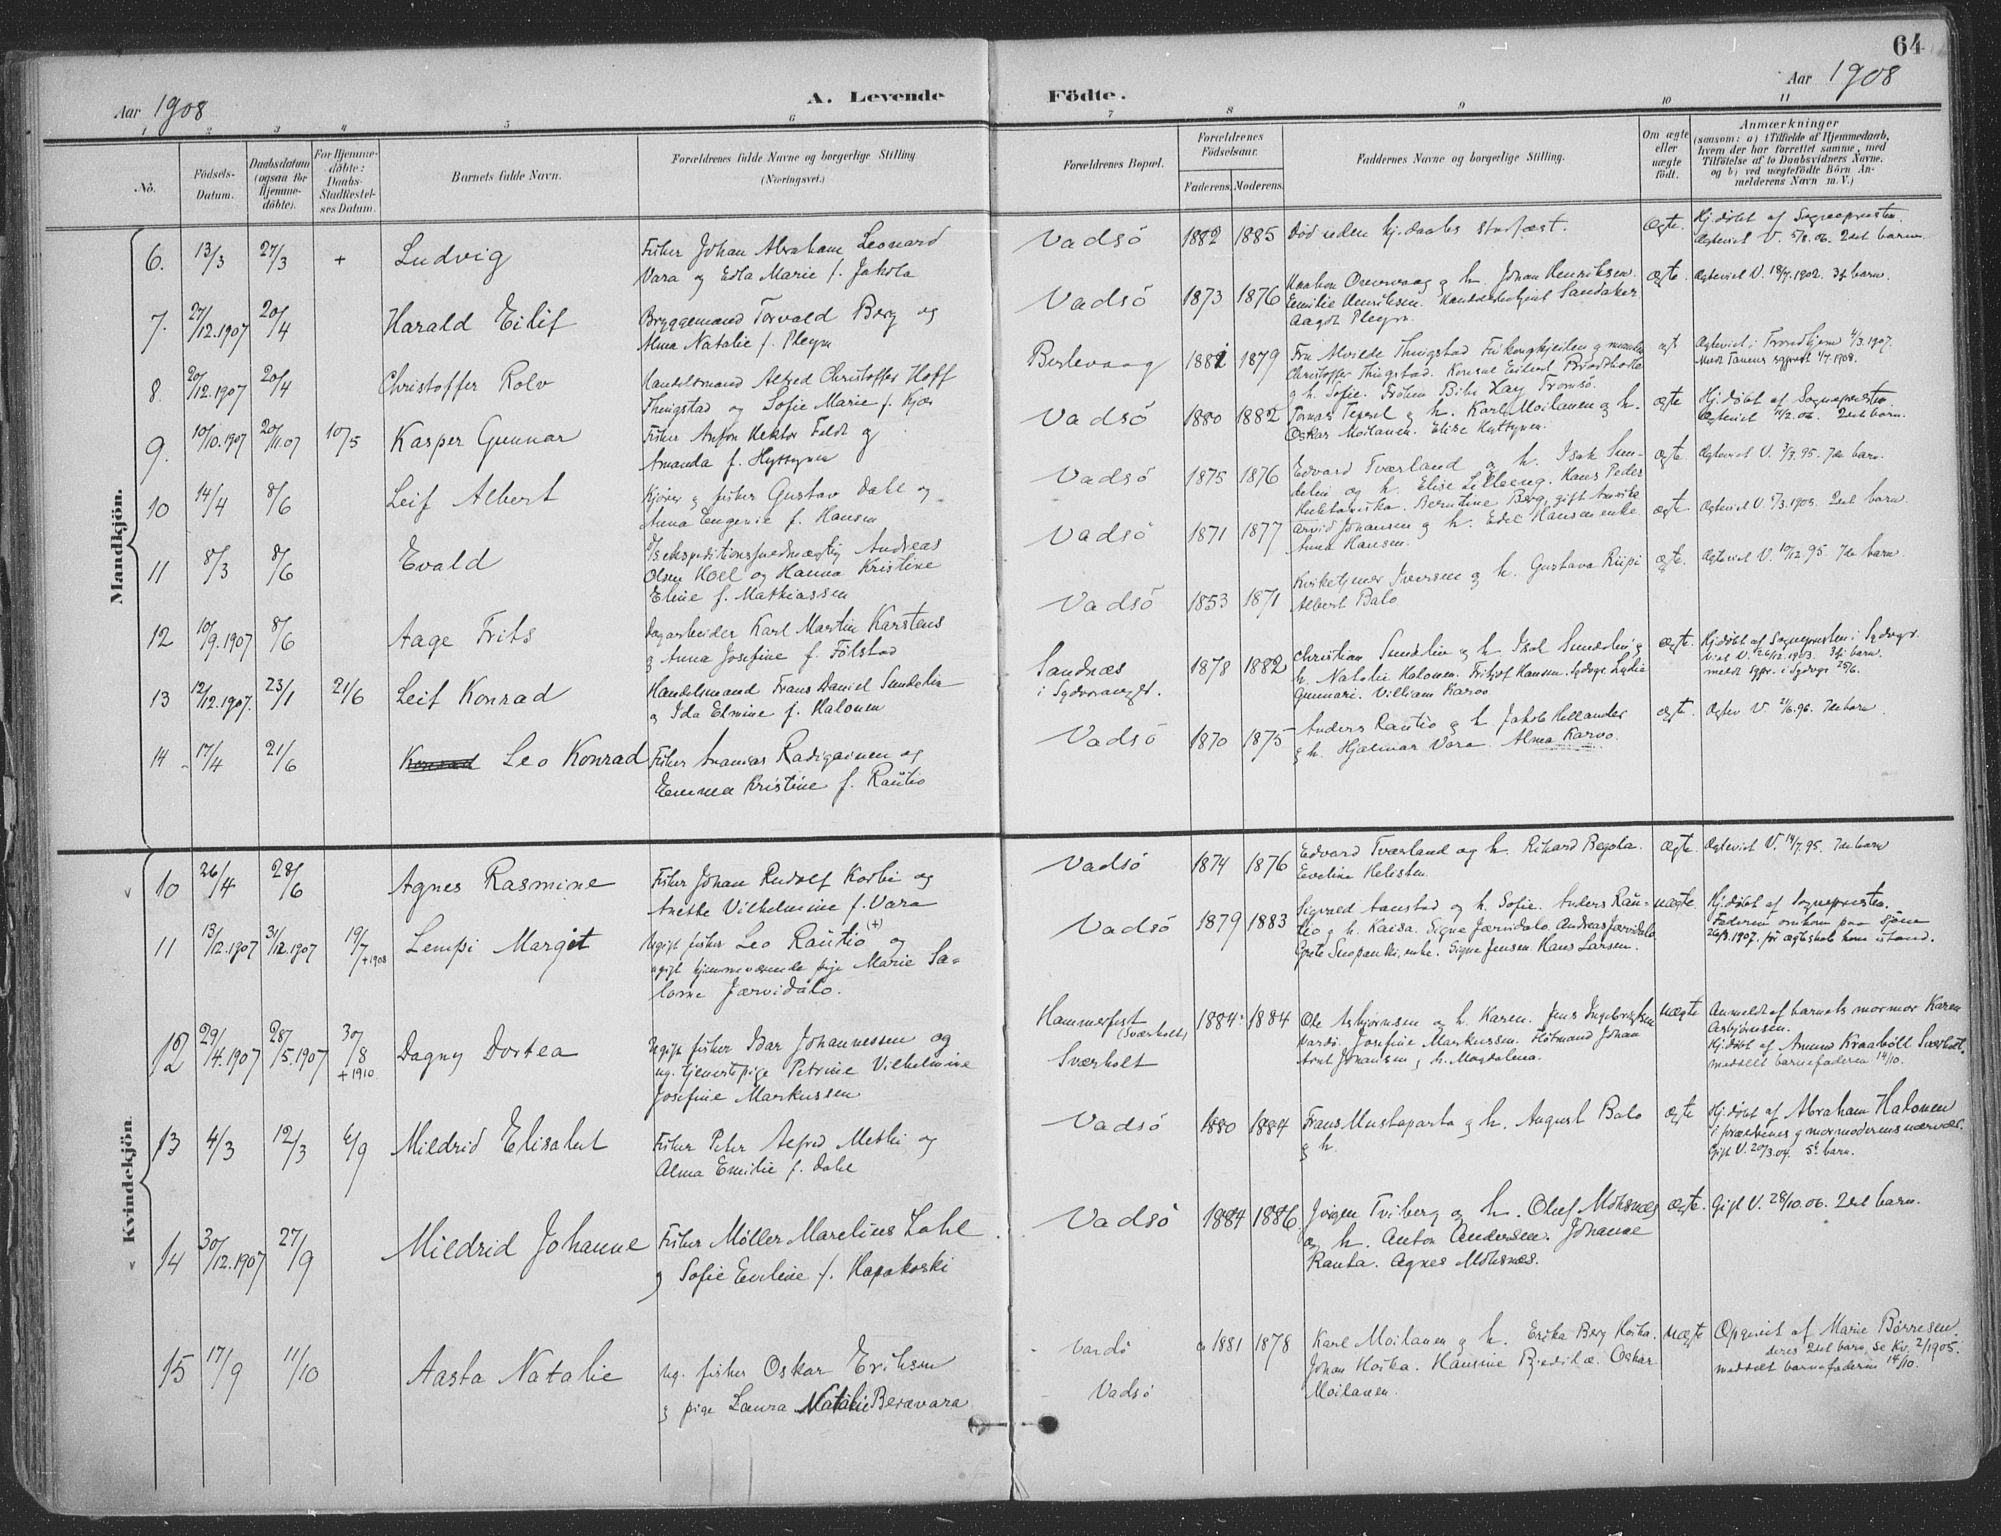 64
Aar 1908
A. Levende Födte.
Aar 1908
1 2 3 4 5 6 7 8 9 10 11
No.
Födsels-Datum.
Daabsdatum (ogsaa for Hjemme-döbte).
For Hjemme-döbte: Daabs-Stadfæstel-ses Datum.
Barnets fulde Navn.
Forældrenes fulde Navne og borgerlige Stilling
(Næringsvei.)
Forældrenes Bopæl.
Forældrenes Födselsaar.
Faderens. Moderens.
Faddernes Navne og borgerlige Stilling.
Om ægte eller uægte födt.
Anmærkninger
(saasom: a) i Tilfælde af Hjemmedaab,
hvem der har forrettet samme, med
Tilföielse af to Daabsvidners Navne.
og b) ved uægtefödte Börn An-
melderens Navn m. V.)
Mandkjön.
6. 13/3 27/3 + Ludvig
Fisker Johan Abraham Leonard
Vara og Edla Marie f. Jakola
Vadsö 1882 1885 Död uden hj.daabs stadfæst. Ægte.
Hj.döbt af Sognepresten.
Ægteviet V. 5/8.06. 2det barn.
7. 27/12.1907 20/4 Harald Eilif
Bryggemand Torvald Berg og
Alma Natalie f. Pleym
Vadsö 1873 1876 Haakon Overvaag g h. Johan Henriksen.
Emilie Henriksen. Sandaker
Aagot Pleym.
ægte. Ægteviet V. 18/7.1902. 3d barn.
8. 20/12.1907 20/4 Christoffer Rolv
Handelsmand Alfred Christoffer Hoff
Thingstad og Sofie Marie f. Kjær
Berlevaag 1881 1879 Fru Alvilde Thingstad
Christoffer Thingstad. Konsul
g h. Sofie. Tromsö.
ægt Ægteviet i Trondhjem 4/3.1907.
Meldt Tanens sgprest 1/7.1908.
9. 10/10.1907 20/11.07 10/5 Kasper Gunnar
Fisker Anton Hektor Feldt og
Amanda f. Hyttynen
Vadsö 1880 1882 Tomas g h. Karl Moilanen g h.
Oskar Moilanen. Elise Hyttynen.
ægte Hj.döbt af Sognepresten
Ægteviet 11/2.06. 2det barn.
10 14/4 8/6 Leif Albert
g fisker Gustav Dahl og
Anna Eugenie f. Hansen
Vadsö 1875 1876 Edvard Tværland og h. Isak Sun-
delin og h. Elise Hans Peder
ægte. Ægteviet V. 3/3.95. 7de barn.
11 8/3 8/6 Evald
Andreas
Olsen Hoel og Hanna Kristine
Eline f. Mathiassen
Vadsö 1871 1877 Arvid Johansen g h. Edel Hansen enke
Anna Hansen.
ægte. Ægteviet V. 5/3.1905. 2det barn.
12 10/9.1907 8/6 Aage Frits
Dagarbeider Karl Martin Karstens
g Anna Josefine f. Fölstad
Vadsö 1853 1871 Kirketjener Iversen g h. Gustava Riipi
Albert Balo
ægte. Ægteviet V. 10/12.95. 7de barn.
13 12/12.1907. 23/1 21/6 Leif Konrad
Handelsmand Frans Daniel Sundelin
g Ida Elmine f. Halonen
Sandnæs
i Sydvaranger.
1878 1882 Christian Sundelin og h. Isak Sundelin g
h. Natalie Halonen. Fritjof Hansen.
Gunnari. William Karvo
ægte. Hj.döbt af Sognepresten i Sydvgr.
Viet V. 26/12.1903. 3d barn.
meldt sgpr. i Sydvgr 25/6.
14 17/4 21/6 Konrad Leo Konrad
Fisker Ananias Radigainen og
Emma Kristine f. Rautio
Vadsö 1870 1875 Anders Rautio g h. Jakob Hellander
g h. Hjalmar Vara. Alma Karvo.
ægte. Ægtev V. 21/6.96. 7de barn.
Kvindekjön.
10 26/4 28/6 Agnes Rasmine
Fisker Johan Rudolf Korbi og
Anette Vilhelmine f. Vara
Vadsö 1874 1876 Edvard Tværland og h. Rikard Begola.
Eveline Helisten.
ægte. Ægteviet V. 14/7.95. 7de barn
11 13/12.1907 31/12.1907 19/7 +1908 Lempi Margit
Ugift fisker Leo Rautio (+) og
ugift hjemmeværende pige Marie Sa-
lome Jærvidalo.
Vadsö 1879 1883 Sigvald Aanstad og h. Sofie. Anders Rau-
tio g h. Kaisa. Signe Jærvidalo. Andreas Jærvidalo
Grete enke. Signe Jensen. Hans Larsen.
uægte Hj.döbt af Sognepresten.
Faderen omkom paa sjöen
26/3.1907. för ægteskab kom istand.
12 29/4.1907 28/5.1907 30/8 +1910 Dagny Dortea
Ugift fisker Idar Johannessen og
ug. tjenestepige Petrine Vilhelmine
Josefine Markussen
Hammerfest
(Sværholt)
Sværholt
1884 1884 Ole Asbjörnsen g h. Karen. Jens Ingebrigtsen
Vardö. Josefine Markussen. Johan
Arnt Johansen g h. Magdalena.
uægte Anmeldt af barnets mormor Karen
Asbjörnsen.
Hj.döbt af Amund Kraaböll Sværholt.
meddelt barnefaderen 14/10.
13 4/3 12/3 6/9 Mildrid Elisabet
Fisker Peter Alfred Metti og
Alma Emilie f. Dahl
Vadsö 1880 1884 Frans Mustaparta g h. August Balo
g h.
ægte Hj.döbt af Abraham Halonen
i forældrenes g mormoderens nærvær.
Gift V. 20/3.04. 5t barn.
14 30/12.1907 27/9 Mildrid Johanne
Fisker Möller Marelius Lahl
g Sofie Eveline f. Hapakoski
Vadsö 1884 1886. Jörgen Tviberg og h. Oluf Mohsnes
og h. Anton Andersen. Johanne
Ranta. Agnes Mohsnes.
ægte. Gift V. 28/10.06. 2det barn.
15 17/9 11/10 Aasta Natalie
Ug. fisker Oskar Eriksen
g pige Laura Natalie Beravara
Vardö
Vadsö
1881 1878 Karl Moilanen g h. Erika Berg Hoika.
Johan Hoika. Hansine Oskar
Moilanen.
Uægte Opgivet af Marie Börresen.
deres 2det barn. Se Kv. 2/1905.
meddelt barnefaderen 14/10.